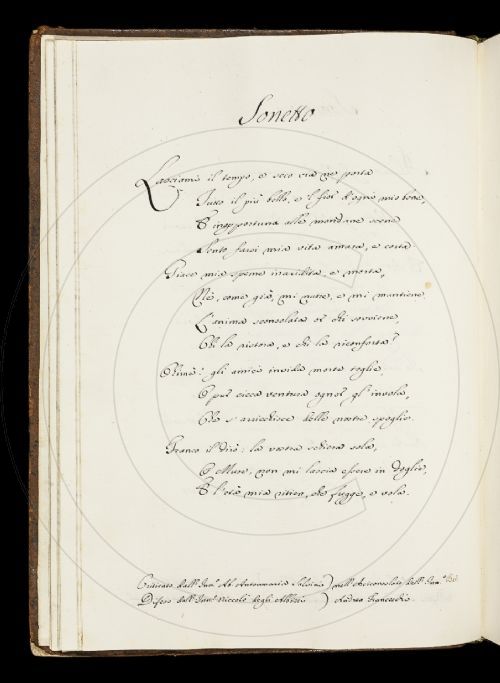 Sonetto
Lasciami il tempo, e seco via ne porta
Tutto il più bello, e 'l fior d'ogni mio bene,
E inopportuna alle mondane scene
Sento farsi mia vita amara, e corta
Giace mia speme inaridita, e morta,
Nè, come già, mi nutre, e mi mantiene
L'anima sconsolata or chi sovviene,
Chi la ristora, e chi la riconforta?
Ohimè! gli amici invida morte toglie,
O pur cieca ventura ognor gl'invola,
Che s'arricchisce delle nostre spoglie.
Franco il dirò: la vostra schiera sola,
O Muse, non mi lascia essere in doglie,
E l'età mia ritien, che fugge, e vola.
Criticato dall' Ab. Antonmaria Salvini) nell' Arciconsolato dell'
Difeso dall' Niccolò degli Albizzi) Andrea Franceschi